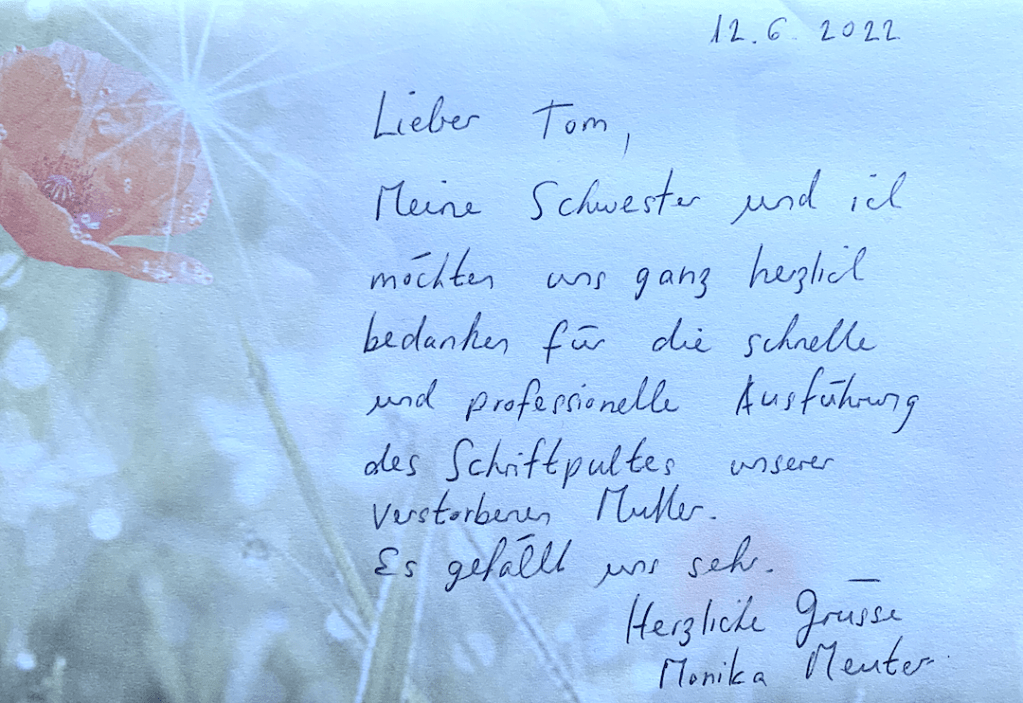 12.6.2022
Lieber Tom,
Meine Schwester und ich
möchten uns ganz herzlich
bedanken für die schnelle
und professionelle Ausführung
des Schriftpultes unserer
verstorbenen Mutter.
Es gefällt uns sehr.
Herzliche Grüsse
Monika Meuter